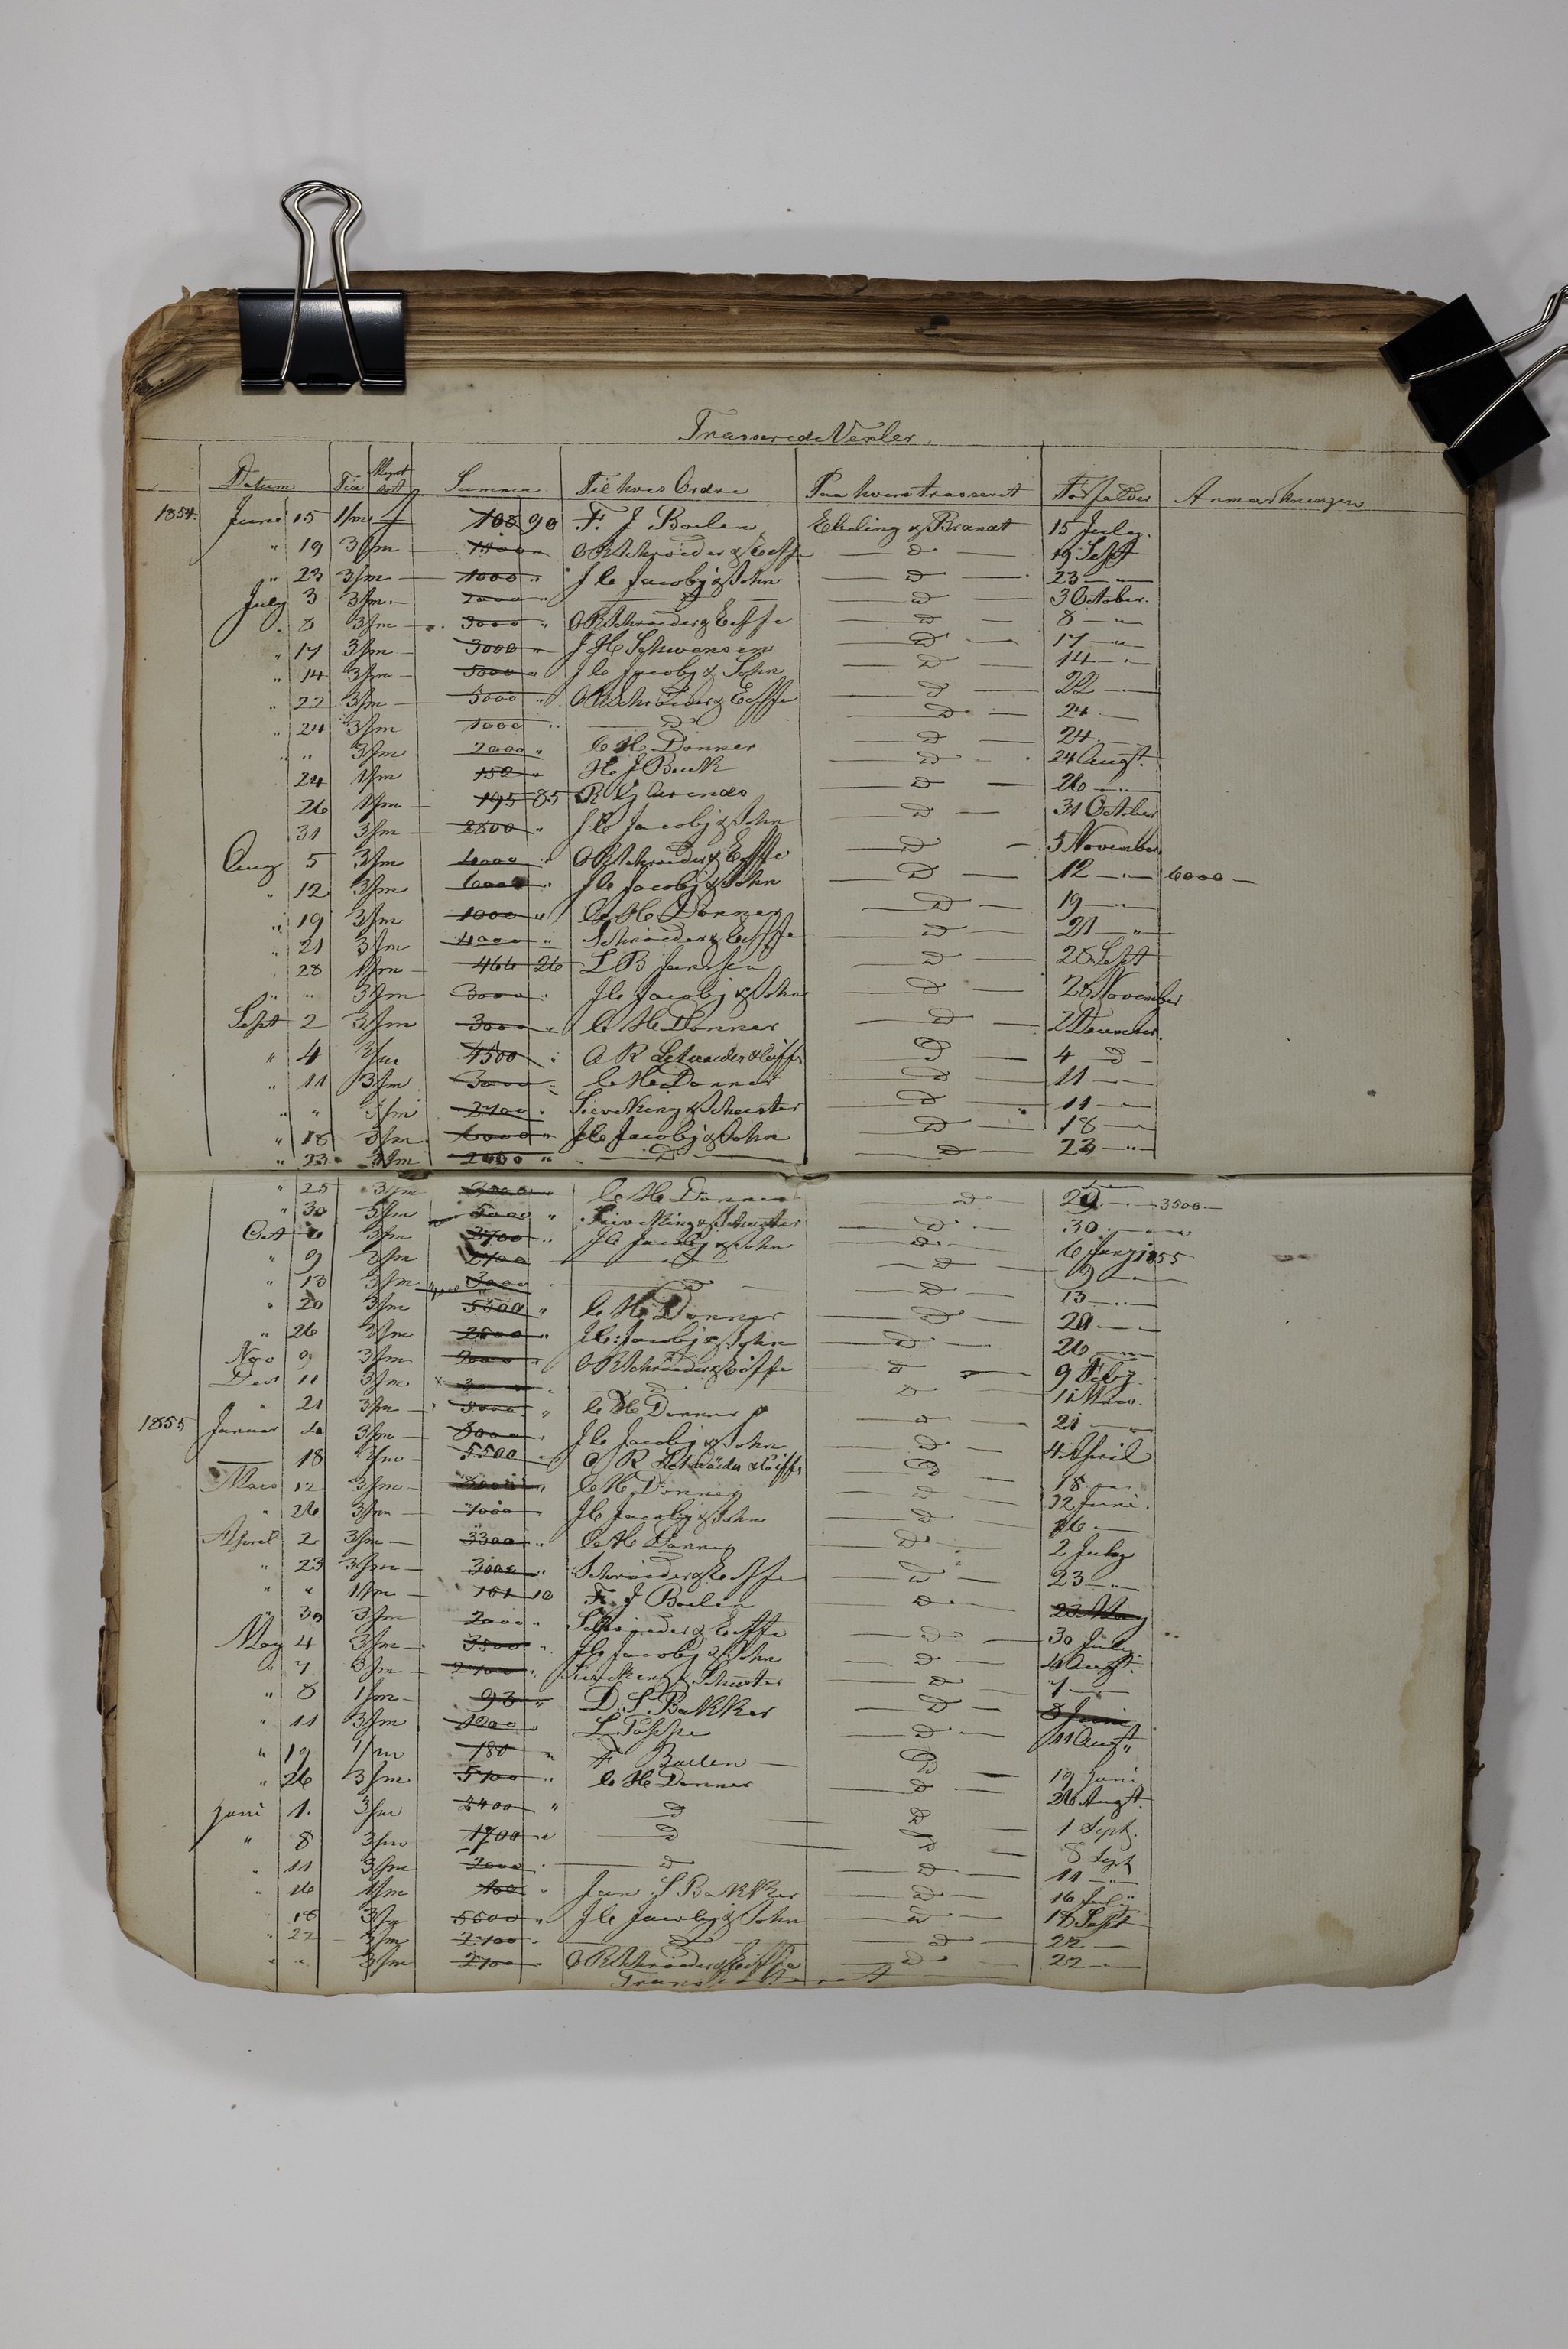 Trasserede Vexler.
Datum Summa Til hvis Ordre Paa hvem trasseret Forfalder Anmærkninger
1854. Juni 15 1/m 108 90 F. J. Boelen Ebeling & Brandt 15 July.
" 19 3/m 1500 " O R Schröder & Eiffe — D — 19 Sept
" 23 3/m — 1000 " J C Jacobj & Sohn — D — 23 — "
July 3 3/m. — 2000 " — D — — D — 3 October.
" 8 3/m — 3000 " O R Schröder & Eiffe — D — 8 — "
" 17 3/m — 3000 " J H Schwensen — D — 17 — "
" 14 3/m — 5000 " J C Jacobj & Sohn — D — 14 — "
" 22 3/m — 5000 " O R Schröder & Eiffe — D — 22 —
" 24 3/m 1000 " — D — — D — 24 —
" " 3/m 2000 " C H Donner — D — 24
24 1/m 152 " H. J Buck — D — 24 Augt.
26 1/m — 195 85 — D — 26 — "
31 3/m — 2500 " J C Jacobj & Sohn — D — 31 October
Aug 5 3/m 4000 " O R Schröder & Eiffe — D — 5 November
" 12 3/m 6000 " J C Jacobj & Sohn — D — 12 — " 6000 —
" 19 3/m 1000 " C H Donner — D — 19 — "
" 21 3/m 4000 " Schröder & Eiffe — D — 21 — "
" 28 1/m — 466 26 L B Janssen — D — 28 Sept
" " 3/m 3000 " J C Jacobj & Sohn — D — 28 November
Sept 2 3/m 3000 " C H Donner — D — 2 December.
" 4 3/m 4500 " O R Schröder & Eiffe — D — 4 — D —
" 11 3/m 3000 " C H Donner — D — 11 — "
" " 3/m 2700 " Sieveking & Schuster — D — 11 — "
" 18 3/m 6000 " J C Jacobj & Sohn — D — 18 — "
" 23 3/m 2000 " — D — — D — 23 — "
" 29 3/m C H Donner — D — 29 — 3500 —
" 30 3/m 5000 " Sieveking & Schuster — D — 30 —
Oct 6 3/m 3700 " J C Jacobj & Sohn — D — 6 Janj 1855
" 9 3/m 2700 — D — — D — 9 —
" 13 3/m 3000 — D — — D — 13 — "
" 20 3/m 5300 " C H Donner — D — 20 —
" 26 3/m 2500 " J C Jacobj & Sohn — D — 26 —
Nov 9 3/m O R Schröder & Eiffe — D — 9 Feby.
Dec 11 3/m — D — — D — 11 Mars.
" 21 3/m — 5000 " C H Donner — D — 21 —
1855 Januar 4 3/m — J C Jacobj & Sohn — D — 4 April
18 3/m — 5500 O R Schröder & Eiffe — D — 18 —
Mars 12 3/m — C H Donner — D — 12 Juni.
" 26 3/m — J C Jacobj & Sohn — D — 26 —
April 2 3/m — 3300 " C H Donner — D — 2 July
" 23 3/m — Schröder & Eiffe — D — 23 — "
" " 1/m — 161 10 F. J Boelen — D — 23 May
" 30 3/m 2000 " Schröder & Eiffe — D — 30 July
May 4 3/m — 3500 " J C Jacobj & Sohn — D — 4 Augt.
" 7 3/m — 2700 " Sieveking & Schuster — D — 7 —
" 8 1/m — 93 " D. S. Bakker — D — 8 Juni
" 11 3/m 1200 " L Poppe — D — 11 Augt
" 19 1/m 180 " F Boelen — — D — 19 Juni
" 26 3/m 5700 " C H Donner — D — 26 Augt.
Juni 1. 3/m 2400 " — D — — D — 1 Sept.
" 8 3/m 1700 " — D — — D — 8 Sept
" 11 3/m 2000 " — D — — D — 11 — "
" 16 1/m 100 " Jan S Bakker — D — 16 July
" 18 3/m 5500 " J C Jacobj & Sohn — D — 18 Sept
" 22 3/m 2700 " — D — — D — 22 —
" " 3/m 2700 O R Schröder & Eiffe — D — 22 —
Transporteret